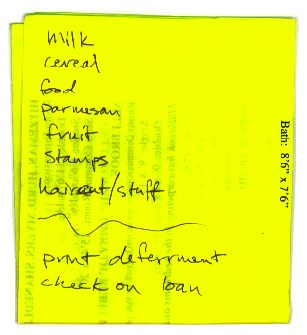 milk
cereal
food
parmesan
fruit
stamps
haircut/stuff
print deferrment
check on loan
Bath: 8'6" x 7'6"